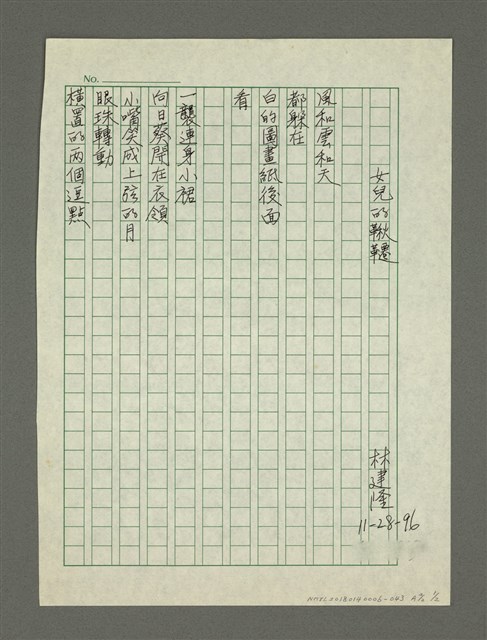 No.
女兒的鞦韆
林建隆
11-28-96
風和雲和天
都躲在
白的圖畫紙後面
看
一襲連身小裙
向日葵開在衣領
小嘴笑成上弦的月
眼珠轉動
橫置的兩個逗點